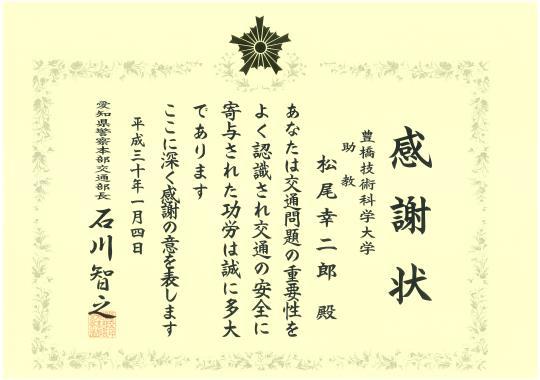 感謝状
豊橋技術科学大学
助教
松尾幸二郎 殿
あなたは交通問題の重要性を
よく認識され交通の安全に
寄与された功労は誠に多大
であります
ここに深く感謝の意を表します
平成三十年一月四日
愛知県警察本部交通部長
石川智之